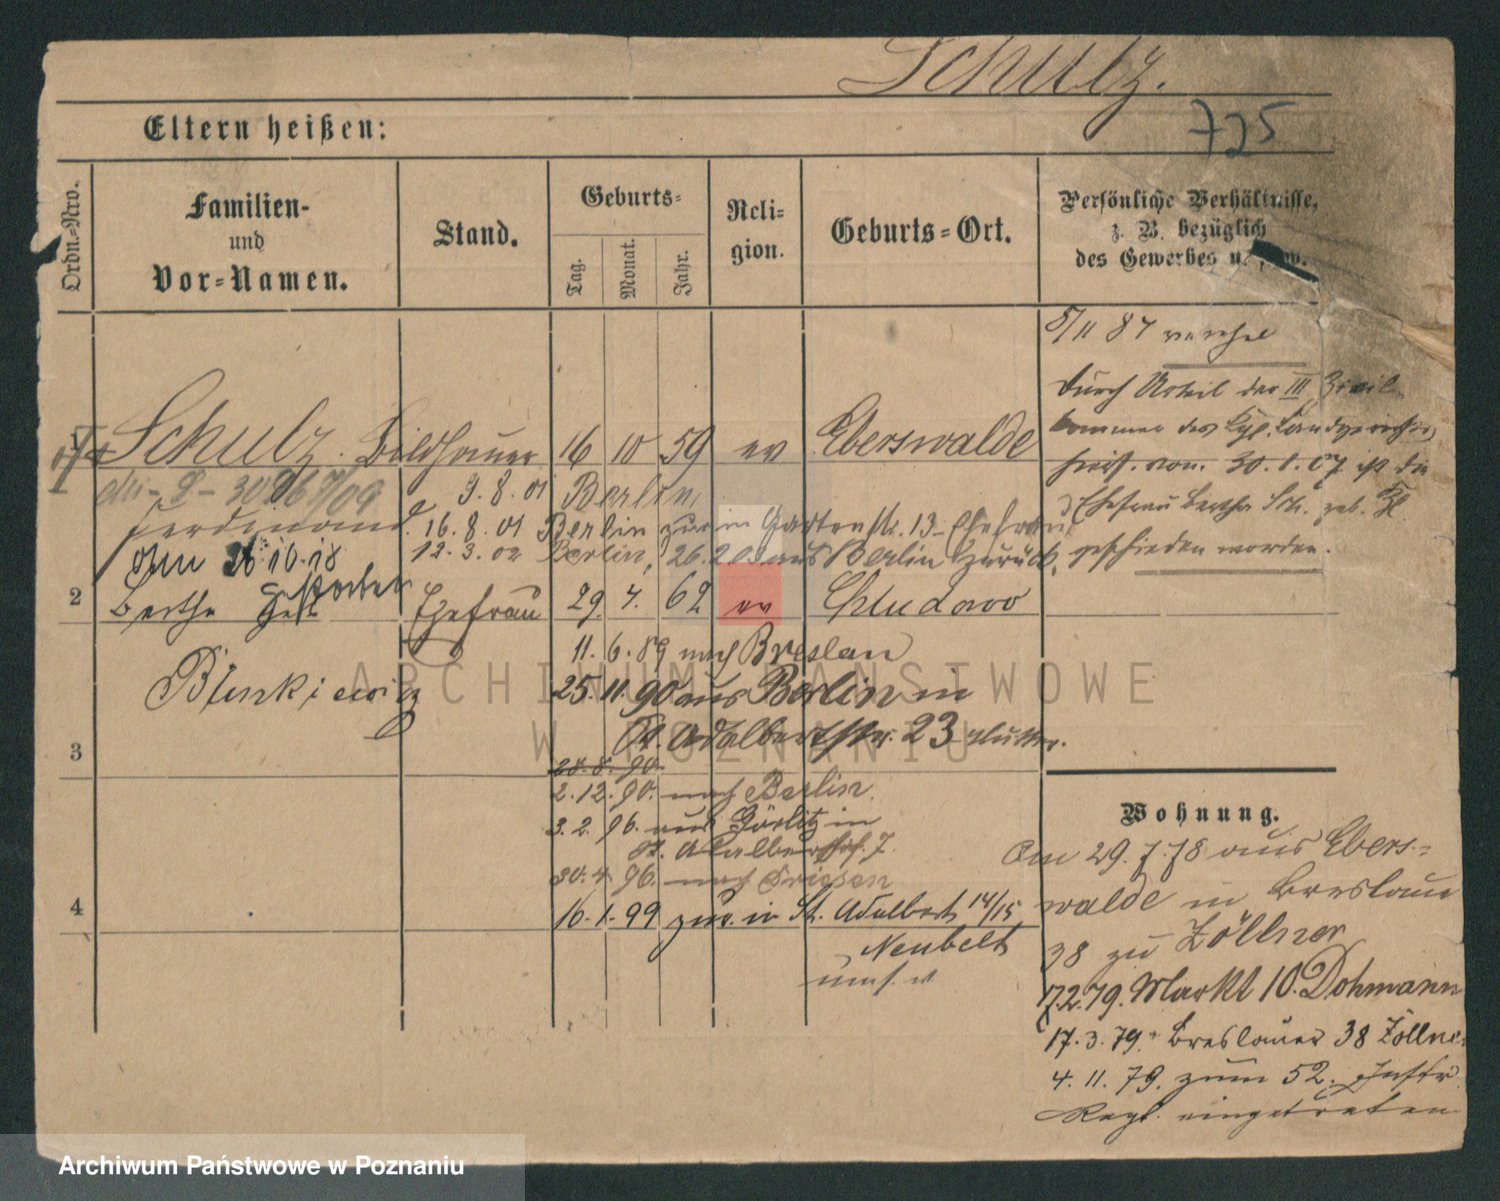 Schulz.
725
Eltern heißen:
Ordn.-Nro.
Familien-
und
Vor-Namen.
Stand.
Geburts-
Tag.
Monat.
Jahr.
Reli-
gion.
Geburts-Ort.
Persönliche Verhältnisse,
z. B. bezüglich
des Gewerbes u.
5/11 87
Durch Urteil der III Zivil-
kammer des Kgl. Landgerichts
hies. vom 30.1.07 ist die
Ehefrau Bertha Sch. geb.
geschieden worden.
1 Schulz. Bildhauer 16 10 59 ev Eberswalde
9.8.01 Berlin
Ferdinand
16.8.01 Berlin zur in Gartenstr. 13 Ehefrau
12.3.02 Berlin, 26.2.03 aus Berlin zurück,
26.10.18
gestorben
2 Bertha Ehefrau 29. 7. 62 ev Chludowo
11. 6. 89 nach Breslau
25. 11. 90 aus Berlin in
St. Adalbertstr. 23 Mutter.
3
28. 8. 90.
2. 12. 90. nach Berlin.
3. 2. 96. aus Görlitz in
St. Adalbertstr. 7.
30. 4. 96. nach Friesen
4 16. 1. 99 zur. in St. Adalbert 14/15
Neubelt
Wohnung.
Am 29. 7. 78 aus Ebers-
walde in Breslauer
38 zu Zöllner
17.2.79. Markt 10. Dohmann
17. 3. 79. Breslauer 38 Zöllner
4. 11. 79. zum 52. Inftr
Regt. eingetreten
ARCHIWUM PAŃSTWOWE
W POZNANIU
Archiwum Państwowe w Poznaniu